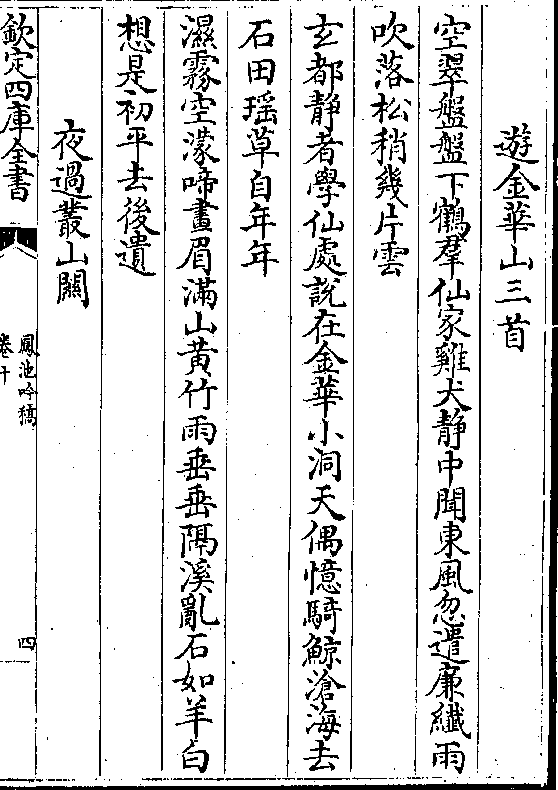 遊金華山三首
空翠盤盤下鶴羣仙家雞犬静中聞東風忽遣廉纖雨
吹落松稍幾片雲
玄都静者學仙處說在金華小洞天偶憶騎鯨滄海去
石田瑶草自年年
濕霧空濛啼畫眉滿山黄竹雨垂垂隔溪亂石如羊白
想是初平去後遺
夜過叢山關
欽定四庫全書
鳳池吟稿
卷十
四